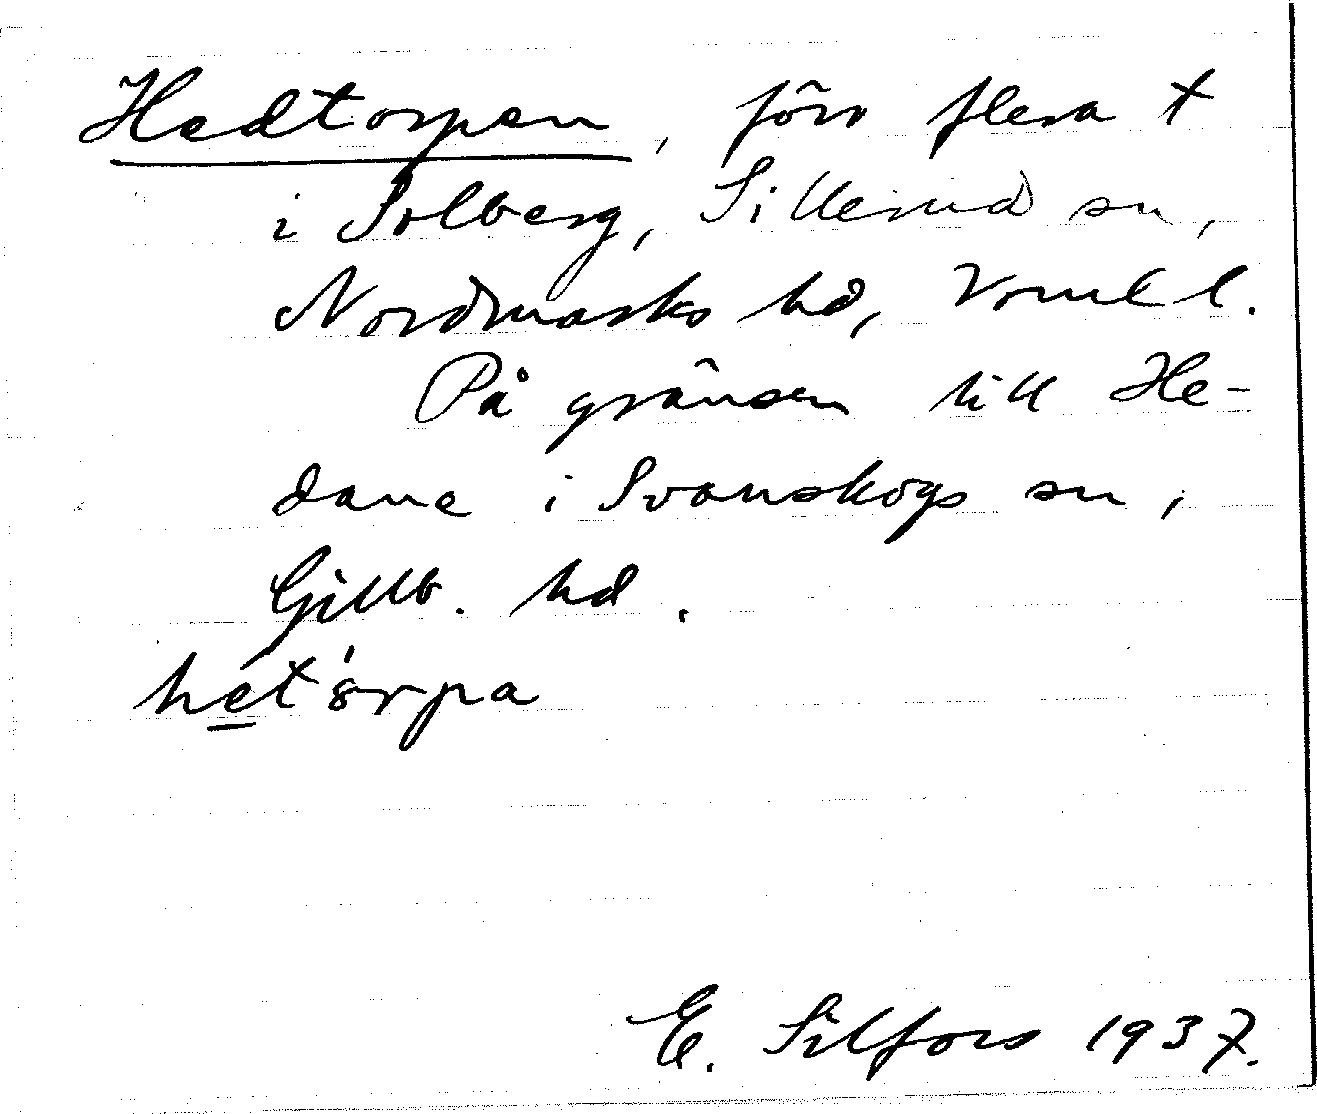 Hedtorpen, förr flera t
i Solberg, Sillerud sn,
Nordmarks hd, Vrml l.
På gränsen till He-
dane i Svanskogs sn,
Gillb. hd.
E. Silfors 1937.